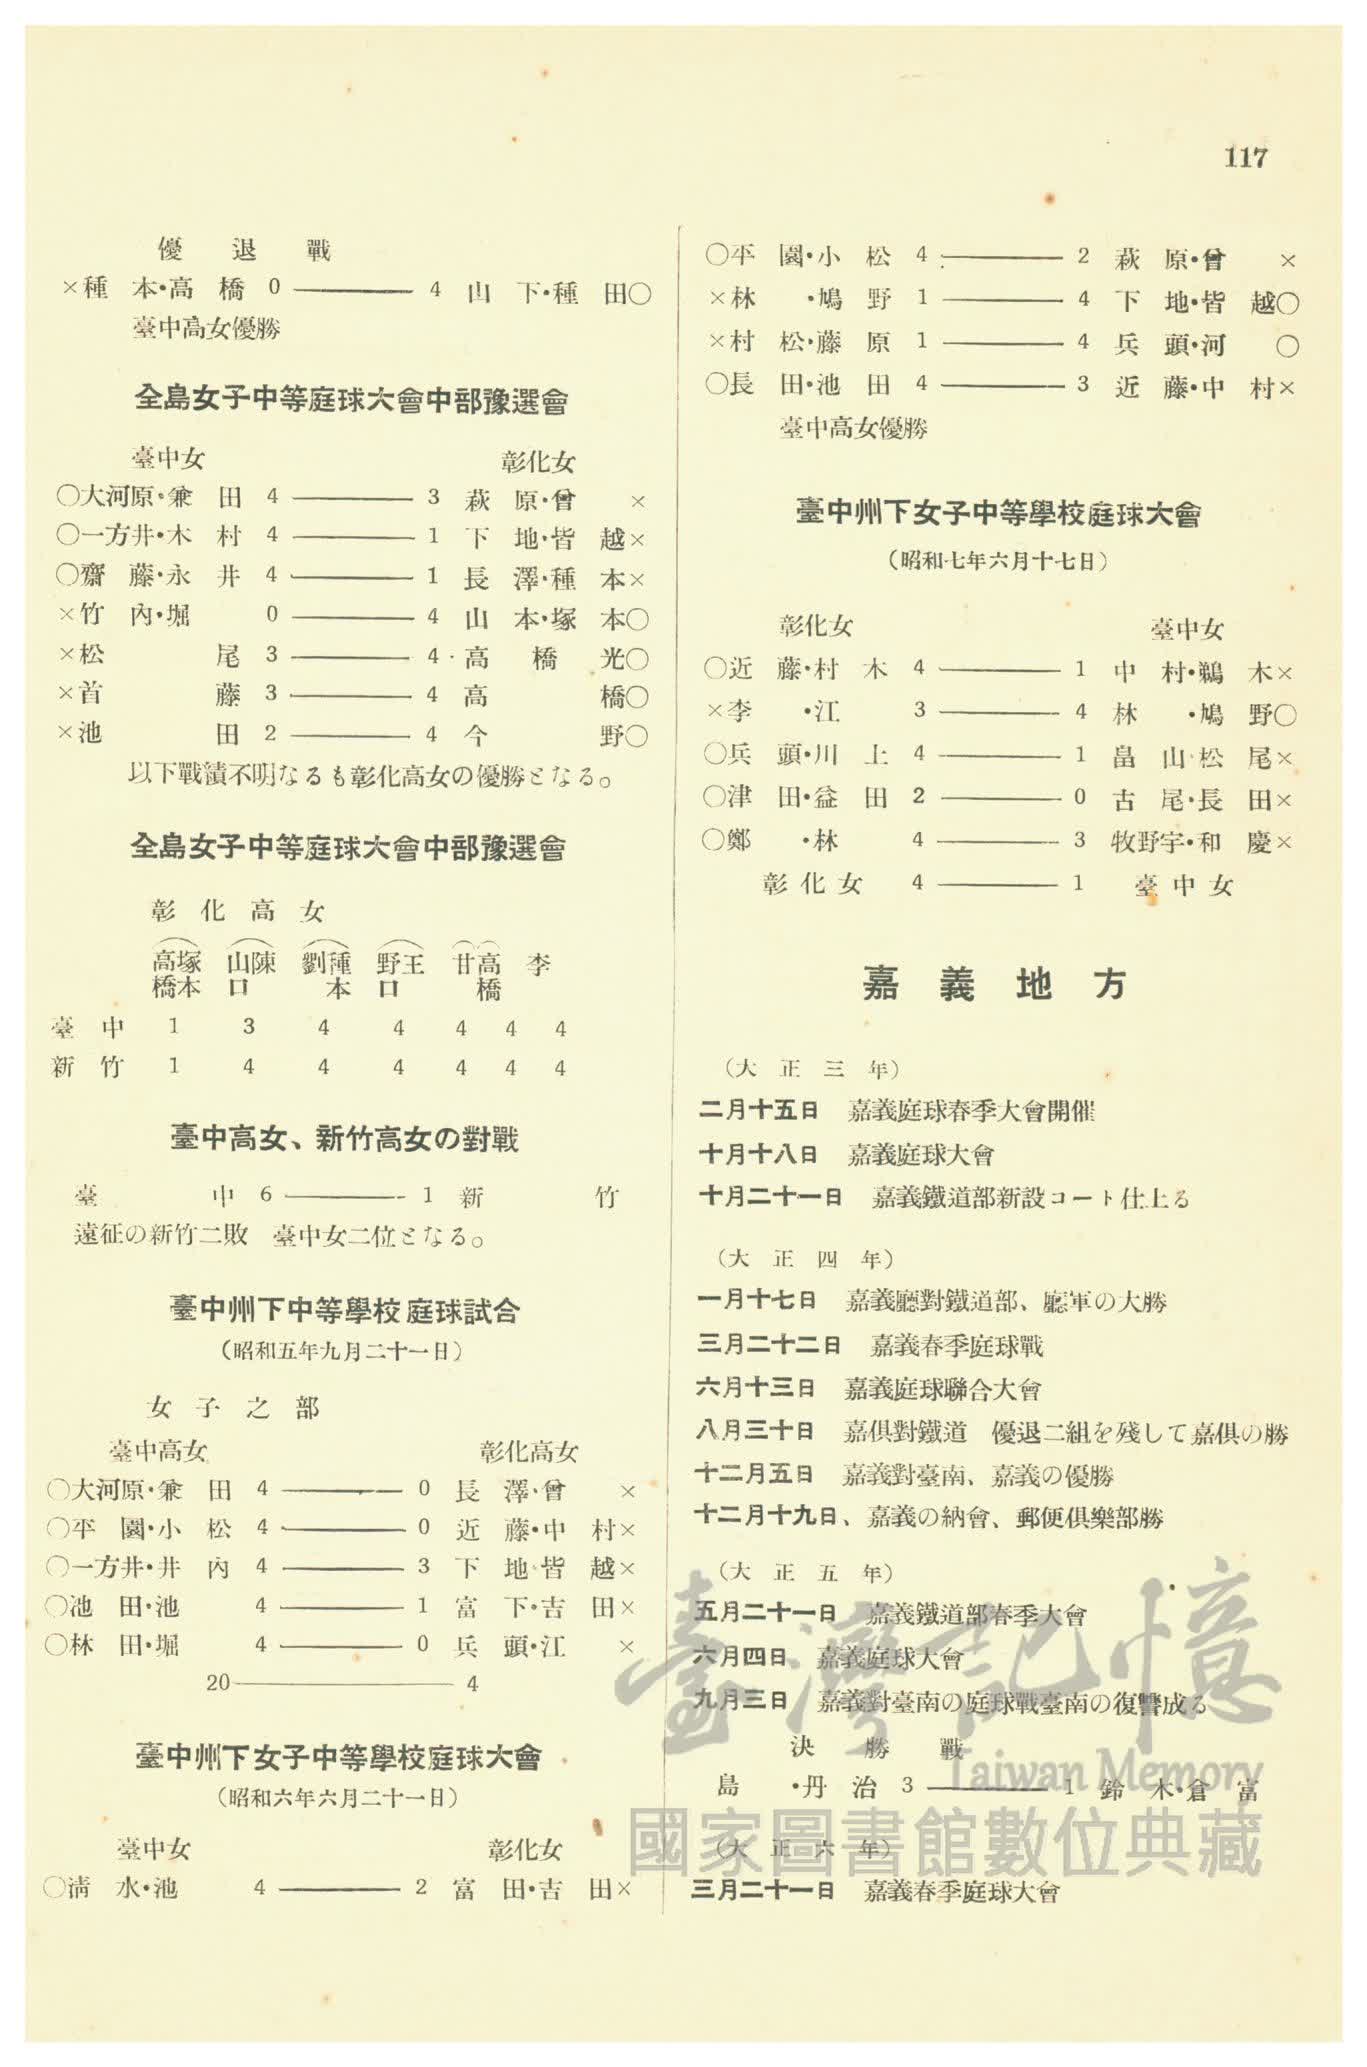 117
優退戰
×種本・高橋 0 ——— 4 山下・種田○
臺中高女優勝
全島女子中等庭球大會中部豫選會
臺中女 彰化女
○大河原・兼田 4 ——— 3 萩原・曾 ×
○一方井・木村 4 ——— 1 下地・皆越×
○齋藤・永井 4 ——— 1 長澤・種本×
×竹內・堀 0 ——— 4 山本・塚本○
×松尾 3 ——— 4 高橋光○
×首藤 3 ——— 4 高橋○
×池田 2 ——— 4 今野○
以下戰績不明なるも彰化高女の優勝となる。
全島女子中等庭球大會中部豫選會
彰化高女
(高橋 塚本) (山口 陳) (劉 種本) (野口 王) (甘 高橋) 李
臺中 1 3 4 4 4 4 4
新竹 1 4 4 4 4 4 4
臺中高女、新竹高女の對戰
臺中 6 ——— 1 新竹
遠征の新竹二敗 臺中女二位となる。
臺中州下中等學校庭球試合
(昭和五年九月二十一日)
女子之部
臺中高女 彰化高女
○大河原・兼田 4 ——— 0 長澤・曾 ×
○平園・小松 4 ——— 0 近藤・中村×
○一方井・井內 4 ——— 3 下地・皆越×
○池田・池 4 ——— 1 富下・吉田×
○林田・堀 4 ——— 0 兵頭・江 ×
20 ——— 4
臺中州下女子中等學校庭球大會
(昭和六年六月二十一日)
臺中女 彰化女
○淸水・池 4 ——— 2 富田・吉田×
○平園・小松 4 ——— 2 萩原・曾 ×
×林・鳩野 1 ——— 4 下地・皆越○
×村松・藤原 1 ——— 4 兵頭・河 ○
○長田・池田 4 ——— 3 近藤・中村×
臺中高女優勝
臺中州下女子中等學校庭球大會
(昭和七年六月十七日)
彰化女 臺中女
○近藤・村木 4 ——— 1 中村・鵜木×
×李・江 3 ——— 4 林・鳩野○
○兵頭・川上 4 ——— 1 畠山・松尾×
○津田・益田 2 ——— 0 古尾・長田×
○鄭・林 4 ——— 3 牧野宇・和慶×
彰化女 4 ——— 1 臺中女
嘉義地方
(大正三年)
二月十五日 嘉義庭球春季大會開催
十月十八日 嘉義庭球大會
十月二十一日 嘉義鐵道部新設コート仕上る
(大正四年)
一月十七日 嘉義廳對鐵道部、廳軍の大勝
三月二十二日 嘉義春季庭球戰
六月十三日 嘉義庭球聯合大會
八月三十日 嘉俱對鐵道 優退二組を殘して嘉俱の勝
十二月五日 嘉義對臺南、嘉義の優勝
十二月十九日、嘉義の納會、郵便俱樂部勝
(大正五年)
五月二十一日 嘉義鐵道部春季大會
六月四日 嘉義庭球大會
九月三日 嘉義對臺南の庭球戰臺南の復讐成る
決勝戰
島・丹治 3 ——— 1 鈴木・倉富
(大正六年)
三月二十一日 嘉義春季庭球大會
臺灣記憶
Taiwan Memory
國家圖書館數位典藏